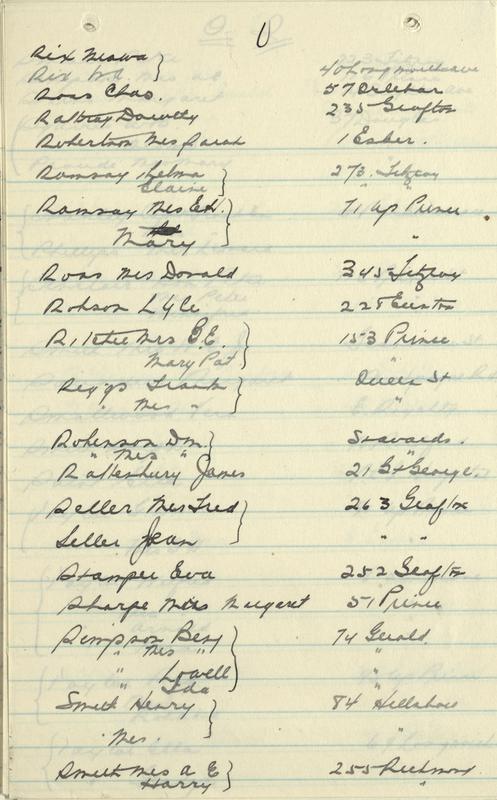 Rix Mrs Wa
Rix Wd. 40 Longworth ave
Ross Chas. 57 Orlebar
Rattray Dorothy 235 Grafton
Robertson Mrs Sarah 1 Esher.
Ramsay Thelma 273 Fitzroy
Elaine "
Ramsay Mrs Ed. 71 Up Prince
Mary "
Ross Mrs Donald 345 Fitzroy
Robson Lyle 228 Euston
Ritchie Mrs C. E. 153 Prince
Mary Pat "
Riggs Frank Queen St
" Mrs " "
Robinson Dm. Stewards.
" Mrs "
Rattenbury James 21 St George
Seller Mrs Fred 263 Grafton
Seller Jean " "
Stamper Eva 252 Grafton
Sharpe Miss Margaret 51 Prince
Simpson Benj 74 Gerald.
" Mrs " "
" Lowell "
" Ida
Smith Henry 84 Hillsboro
Mrs "
Smith Mrs A E 255 Richmond
Harry "